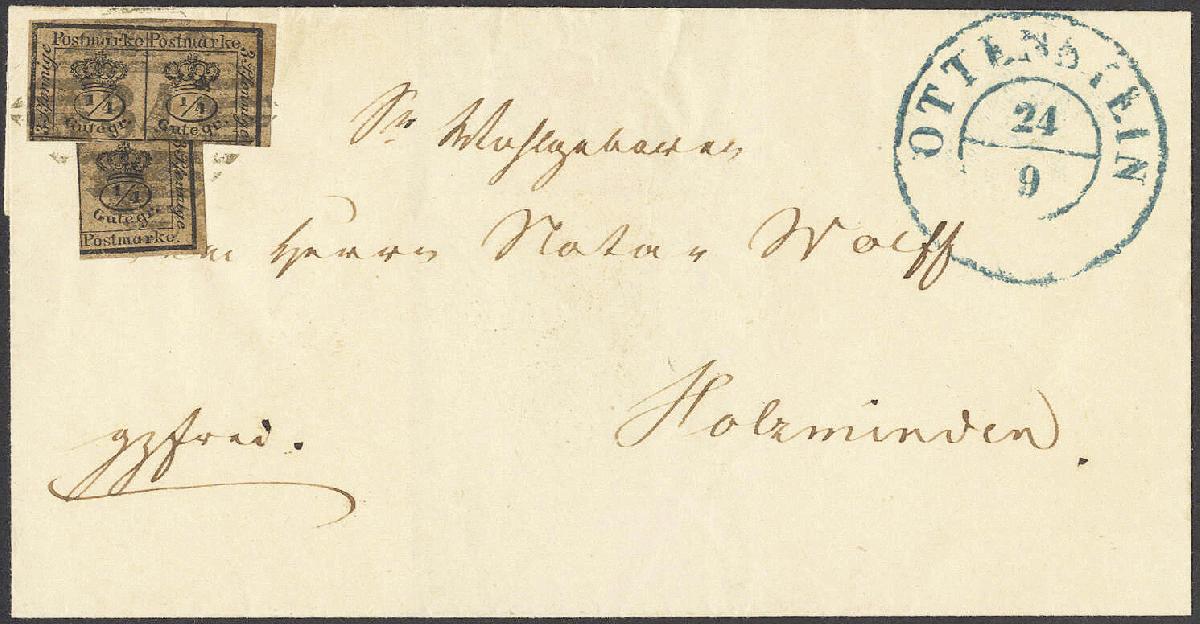 Postmarke Postmarke
3 Pfennige 1/4 1/4 3 Pfennige
Gutegr. Gutegr.
1/4 3 Pfennige
Gutegr.
Postmarke
OTTENSTEIN
24
9
Sr Wohlgeboren
Herrn Notar Wolff
Holzminden.
gzfrei.